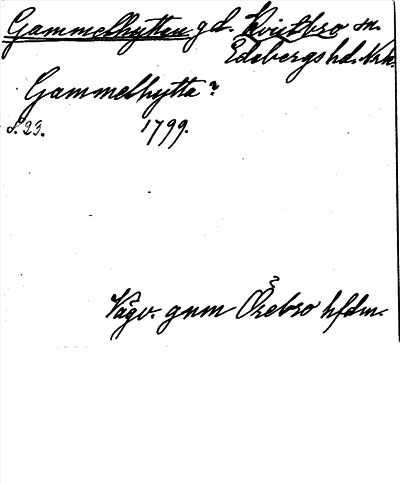 Gammelhyttan gd. Kvistbro sn.
Edsbergs hd. Nrk.
Gammelhytta?
S. 23. 1799.
Vägv. gnm Örebro hfdm.